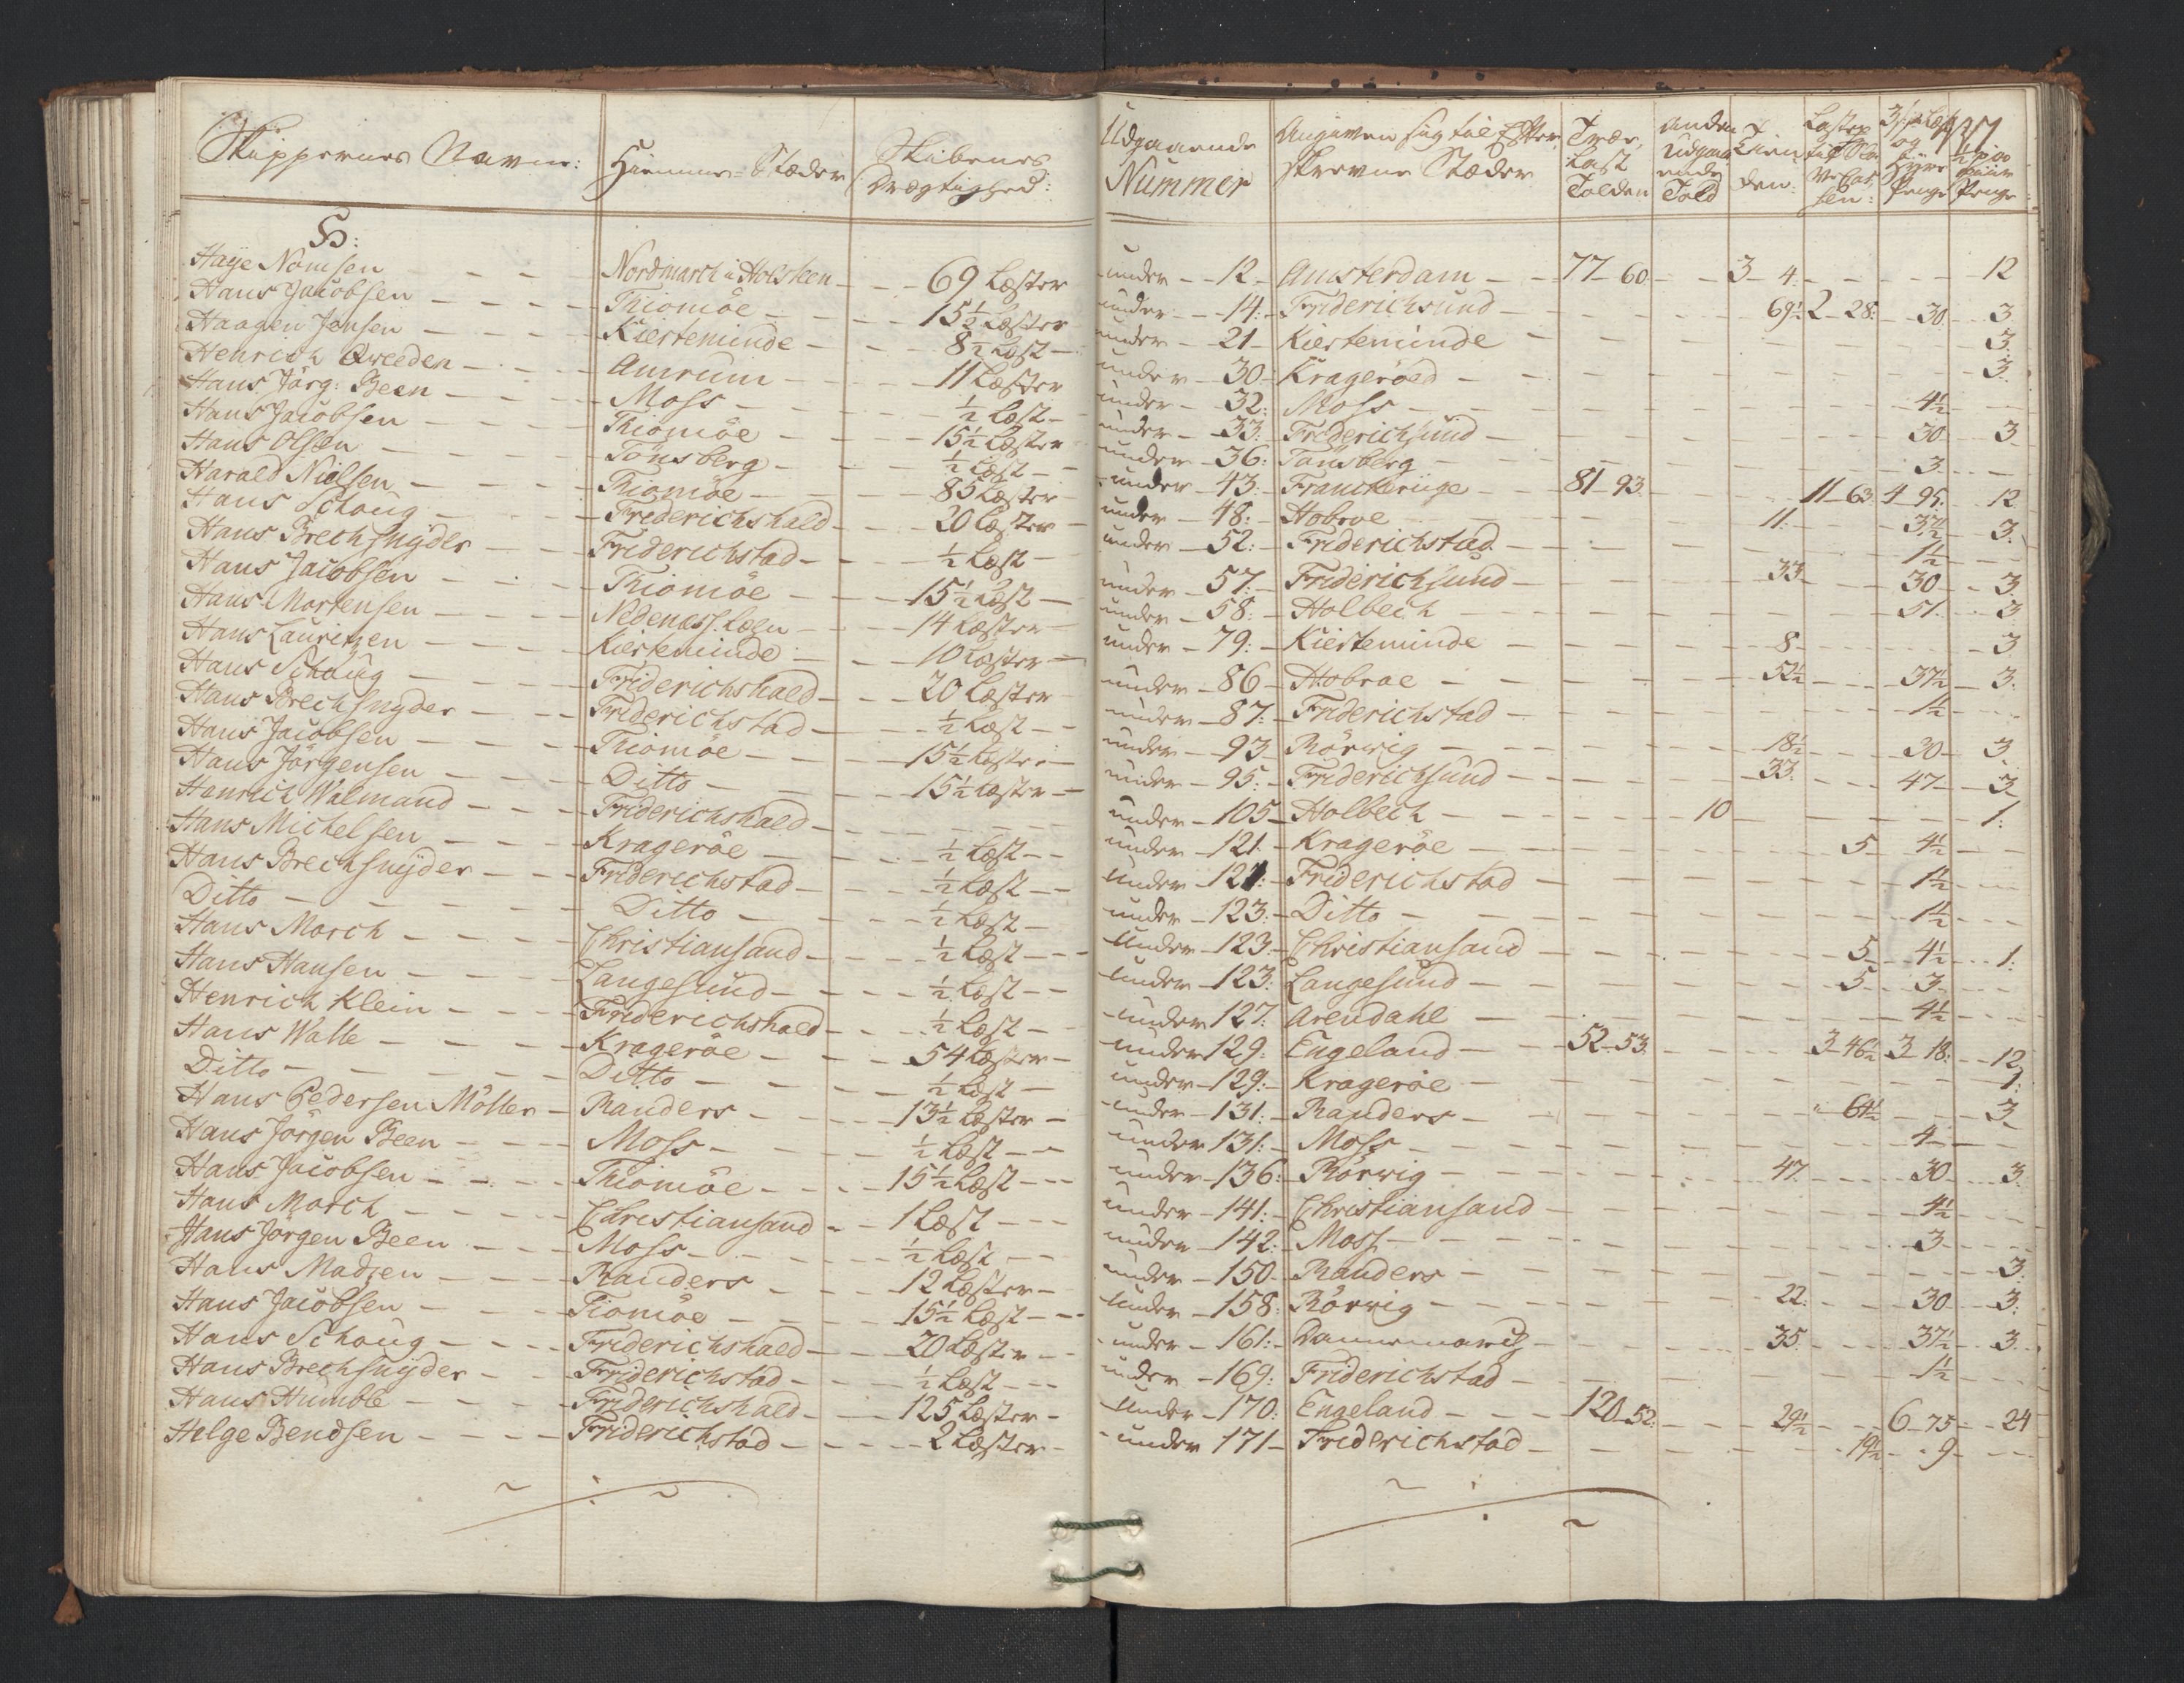 Skippernes Navne: Hiemme-Stæder Skibenes Drægtighed: Udgaaende Nummer Angiven sig til Efterskrevne Stæder Træ-Last Tolden Anden Udgaaende Told Tienden: 137
H:
Haye Nomsen Nordmarch i Holsteen 69 Læster under 12 Amsterdam 77-60 3-4 12
Hans Jacobsen Thiomöe 15½ Læster under 14: Friderichsund 69½ 2-28: 30 3
Haagen Jensen Kierteminde 8½ Læst under 21 Kierteminde 3
Henrich Qveeden Amrum 11 Læster under 30 Krageröe 3
Hans Jörg: Been Moss ½ Læst under 32: Moss 4½
Hans Jacobsen Thiomöe 15½ Læster under 33: Friderichsund 30 3
Hans Olsen Tönsberg ½ Læst under 36: Tönsberg 3
Harald Nielsen Thiomöe 85 Læster under 43: Franckerige 81-93 11-63 4-95 12
Hans Schoug Friderichshald 20 Læster under 48: Hobroe 11: 37½ 3
Hans Brechsnyder Friderichstad ½ Læst under 52: Friderichstad 1½
Hans Jacobsen Thiomöe 15½ Læst under 57: Friderichsund 33 30 3
Hans Mortensen Nedenæss Læen 14 Læster under 58: Holbech 51 3
Hans Lauritzen Kierteminde 10 Læster under 79: Kierteminde 8 3
Hans Schoug Friderichshald 20 Læster under 86 Hobroe 52½ 37½ 3
Hans Brechsnyder Friderichstad ½ Læst under 87: Friderichstad 1½
Hans Jacobsen Thiomöe 15½ Læster under 93 Rörvig 18½ 30 3
Hans Jörgensen Ditto 15½ Læster under 95: Friderichsund 33 47 3
Henrich Walmand Friderichshald under 105 Holbech 10 1:
Hans Michelsen Krageröe ½ Læst under 121 Krageröe 5 4½
Hans Brechsnyder Friderichstad ½ Læst under 121: Friderichstad 1½
Ditto Ditto ½ Læst under 123: Ditto 1½
Hans March Christiansand ½ Læst under 123 Christiansand 5 4½ 1:
Hans Hansen Langesund ½ Læst under 123: Langesund 5 3
Henrich Klein Friderichshald ½ Læst under 127: Arendahl 4½
Hans Walle Krageröe 54 Læster under 129: Engeland 52-53 3-46½ 3-18: 12
Ditto Ditto ½ Læst under 129: Krageröe 1:
Hans Pedersen Möller Randers 13½ Læster under 131: Randers 64½ 3
Hans Jörgen Been Moss ½ Læst under 131: Moss 4
Hans Jacobsen Thiomöe 15½ Læst under 136: Rörvig 47 30 3
Hans March Christiansand 1 Læst under 141: Christiansand 4½
Hans Jörgen Been Moss ½ Læst under 142: Moss 3
Hans Madzen Randers 12 Læster under 150 Randers 3
Hans Jacobsen Tiomöe 15½ Læst under 158: Rörvig 22: 30 3:
Hans Schoug Friderichshald 20 Læster under 161: Dannemarch 35 37½ 3
Hans Brechsnyder Friderichstad ½ Læst under 169: Friderichstad 1½
Hans Humble Friderichshald 125 Læster under 170: Engeland 120-52: 29½ 6-75 24
Helge Bendsen Friderichstad 2 Læster under 171 Friderichstad 19½ 9